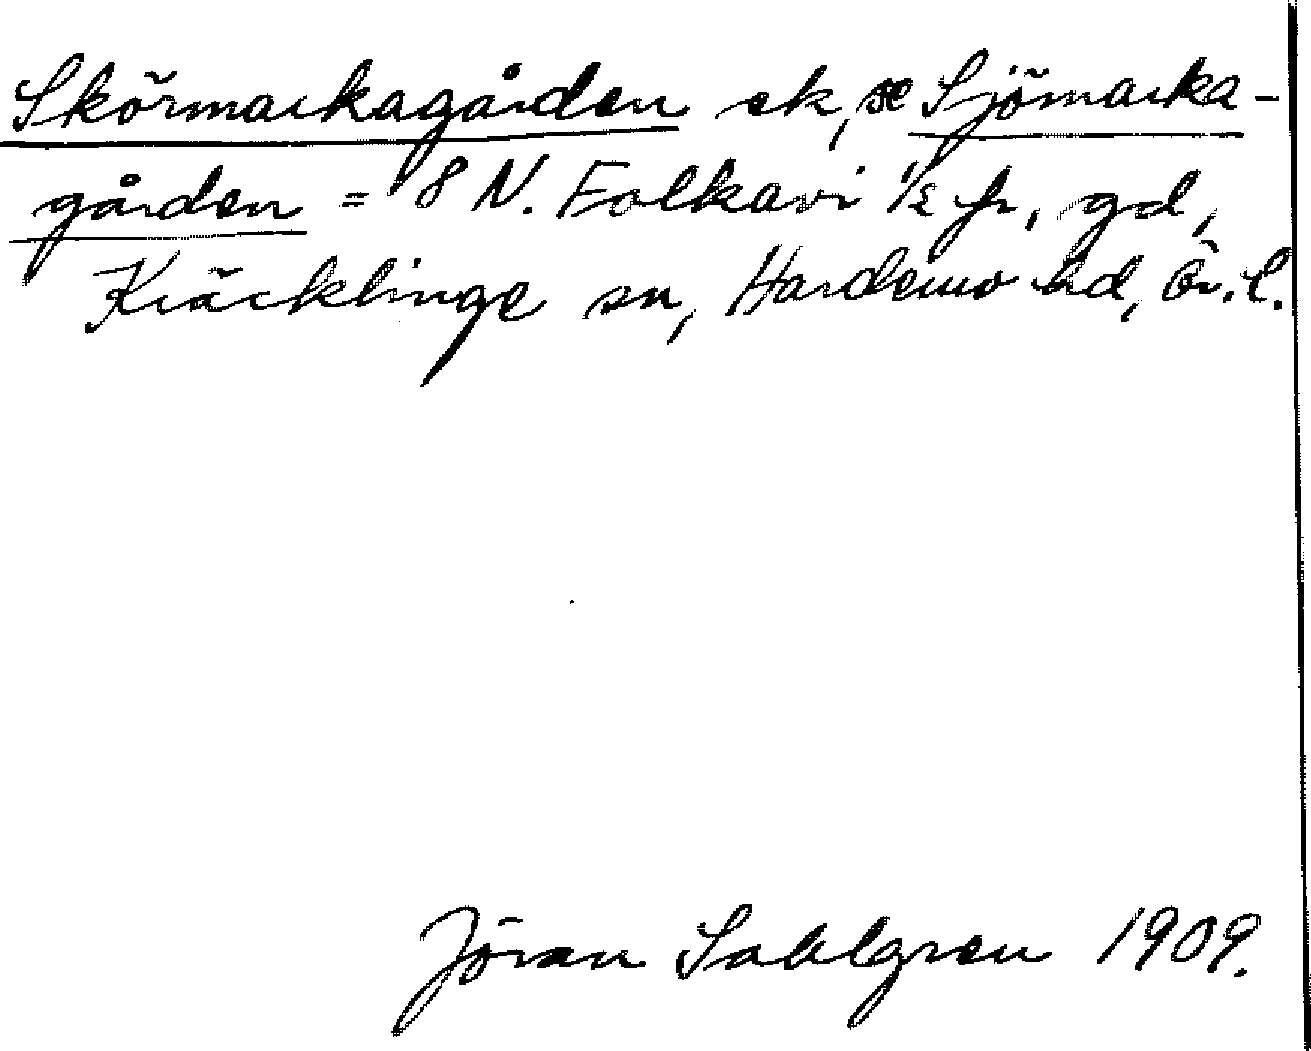 Skörmarkagården ek, se Sjömarka-
gården = 8 N. Folkavi 1/2 fr, gd,
Kräcklinge sn, Hardemo hd, Ör. l.
Jöran Sahlgren 1909.